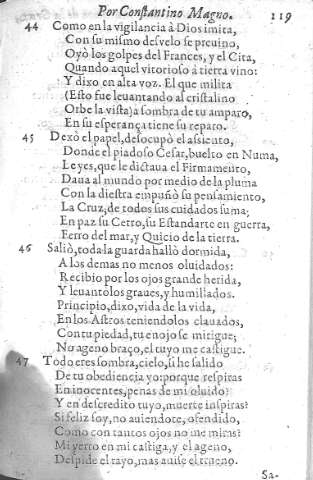 Por Constantino Magno. 119
44 Como en la vigilancia à Dios imita,
Con su mismo desvelo se preuino,
Oyò los golpes del Frances, y el Cita,
Quando aquel vitorioso à tierra vino:
Y dixo en alta voz. El que milita
(Esto fue leuantando al cristalino
Orbe la vista) a sombra de tu amparo,
En su esperança tiene su reparo.
45 Dexò el papel, desocupò el assiento,
Donde el piadoso Cesar, buelto en Numa,
Leyes, que le dictaua el Firmamento,
Daua al mundo por medio de la pluma
Con la diestra empuñò su pensamiento,
La Cruz, de todos sus cuidados suma;
En paz su Cetro, su Estandarte en guerra,
Ferro del mar, y Quicio de la tierra.
46 Saliò, toda la guarda hallò dormida,
A los demas no menos oluidados:
Recibio por los ojos grande herida,
Y leuantolos graues, y humillados.
Principio, dixo, vida de la vida,
En los Astros teniendolos clauados,
Con tu piedad, tu enojo se mitigue;
No ageno braço, el tuyo me castigue.
47 Todo eres sombra, cielo, si he salido
De tu obediencia yo: porque respiras
En inocentes, penas de mi oluido?
Y en descredito tuyo, muerte inspiras?
Si feliz soy, no auiendote, ofendido,
Como con tantos ojos no me miras?
Mi yerro en mi castiga, y el ageno,
Despide el rayo, mas auise el trueno.
Sa-